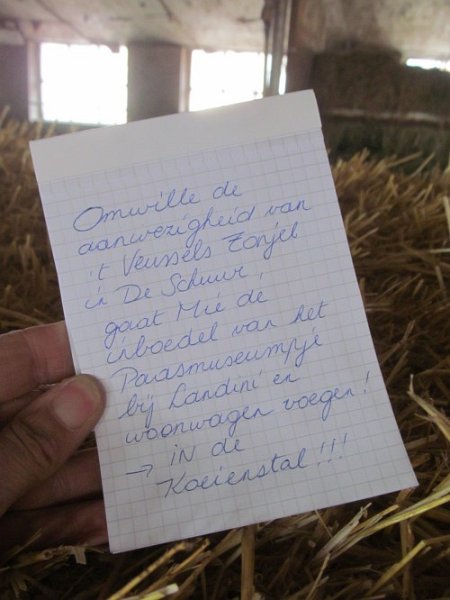 Omwille de
aanwezigheid van
't Veussels Zonjel
in De Schuur,
gaat Mié de
inboedel van het
Paasmuseumpje
bij Landini en
woonwagen voegen!
→ iN de
Koeienstal!!!